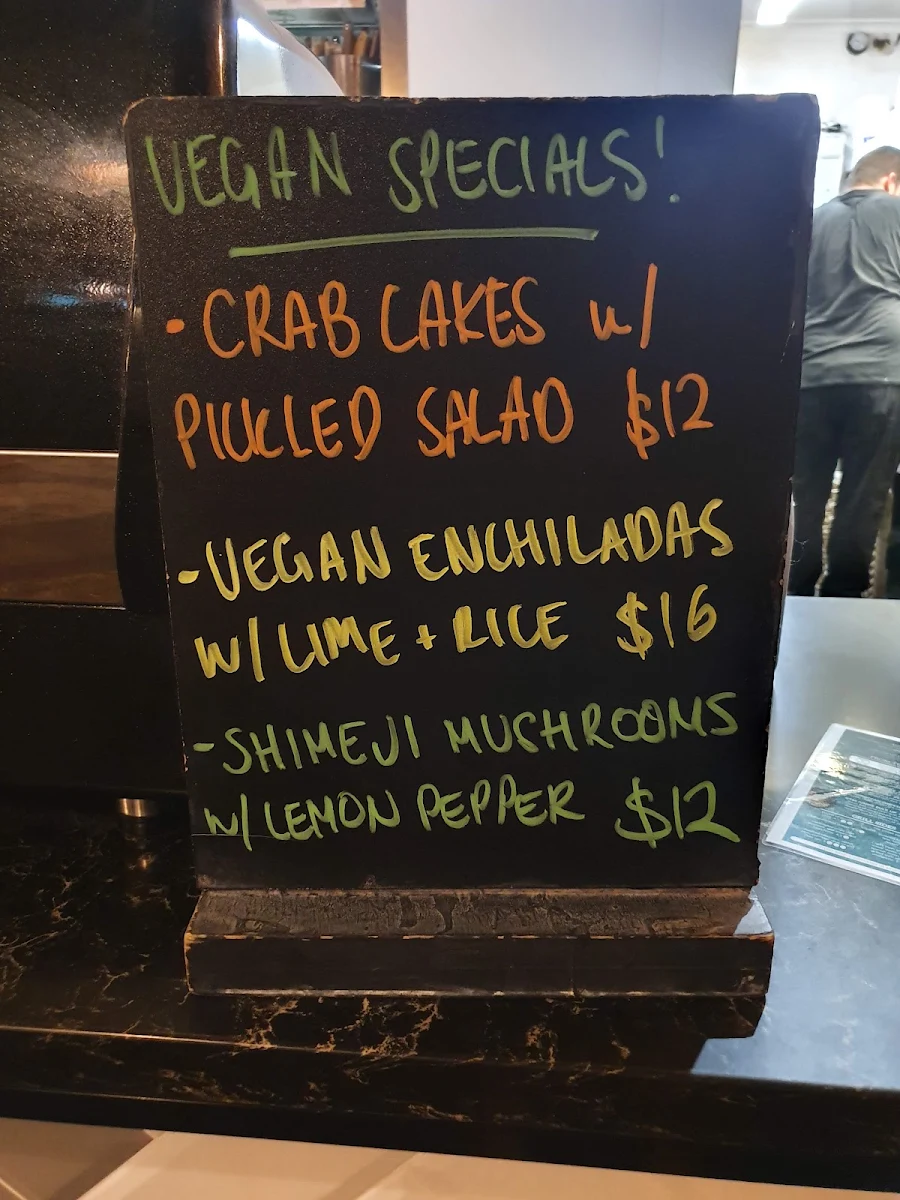 VEGAN SPECIALS!
- CRAB CAKES w/
PICKLED SALAD $12
- VEGAN ENCHILADAS
W/ LIME + RICE $16
- SHIMEJI MUSHROOMS
W/ LEMON PEPPER $12